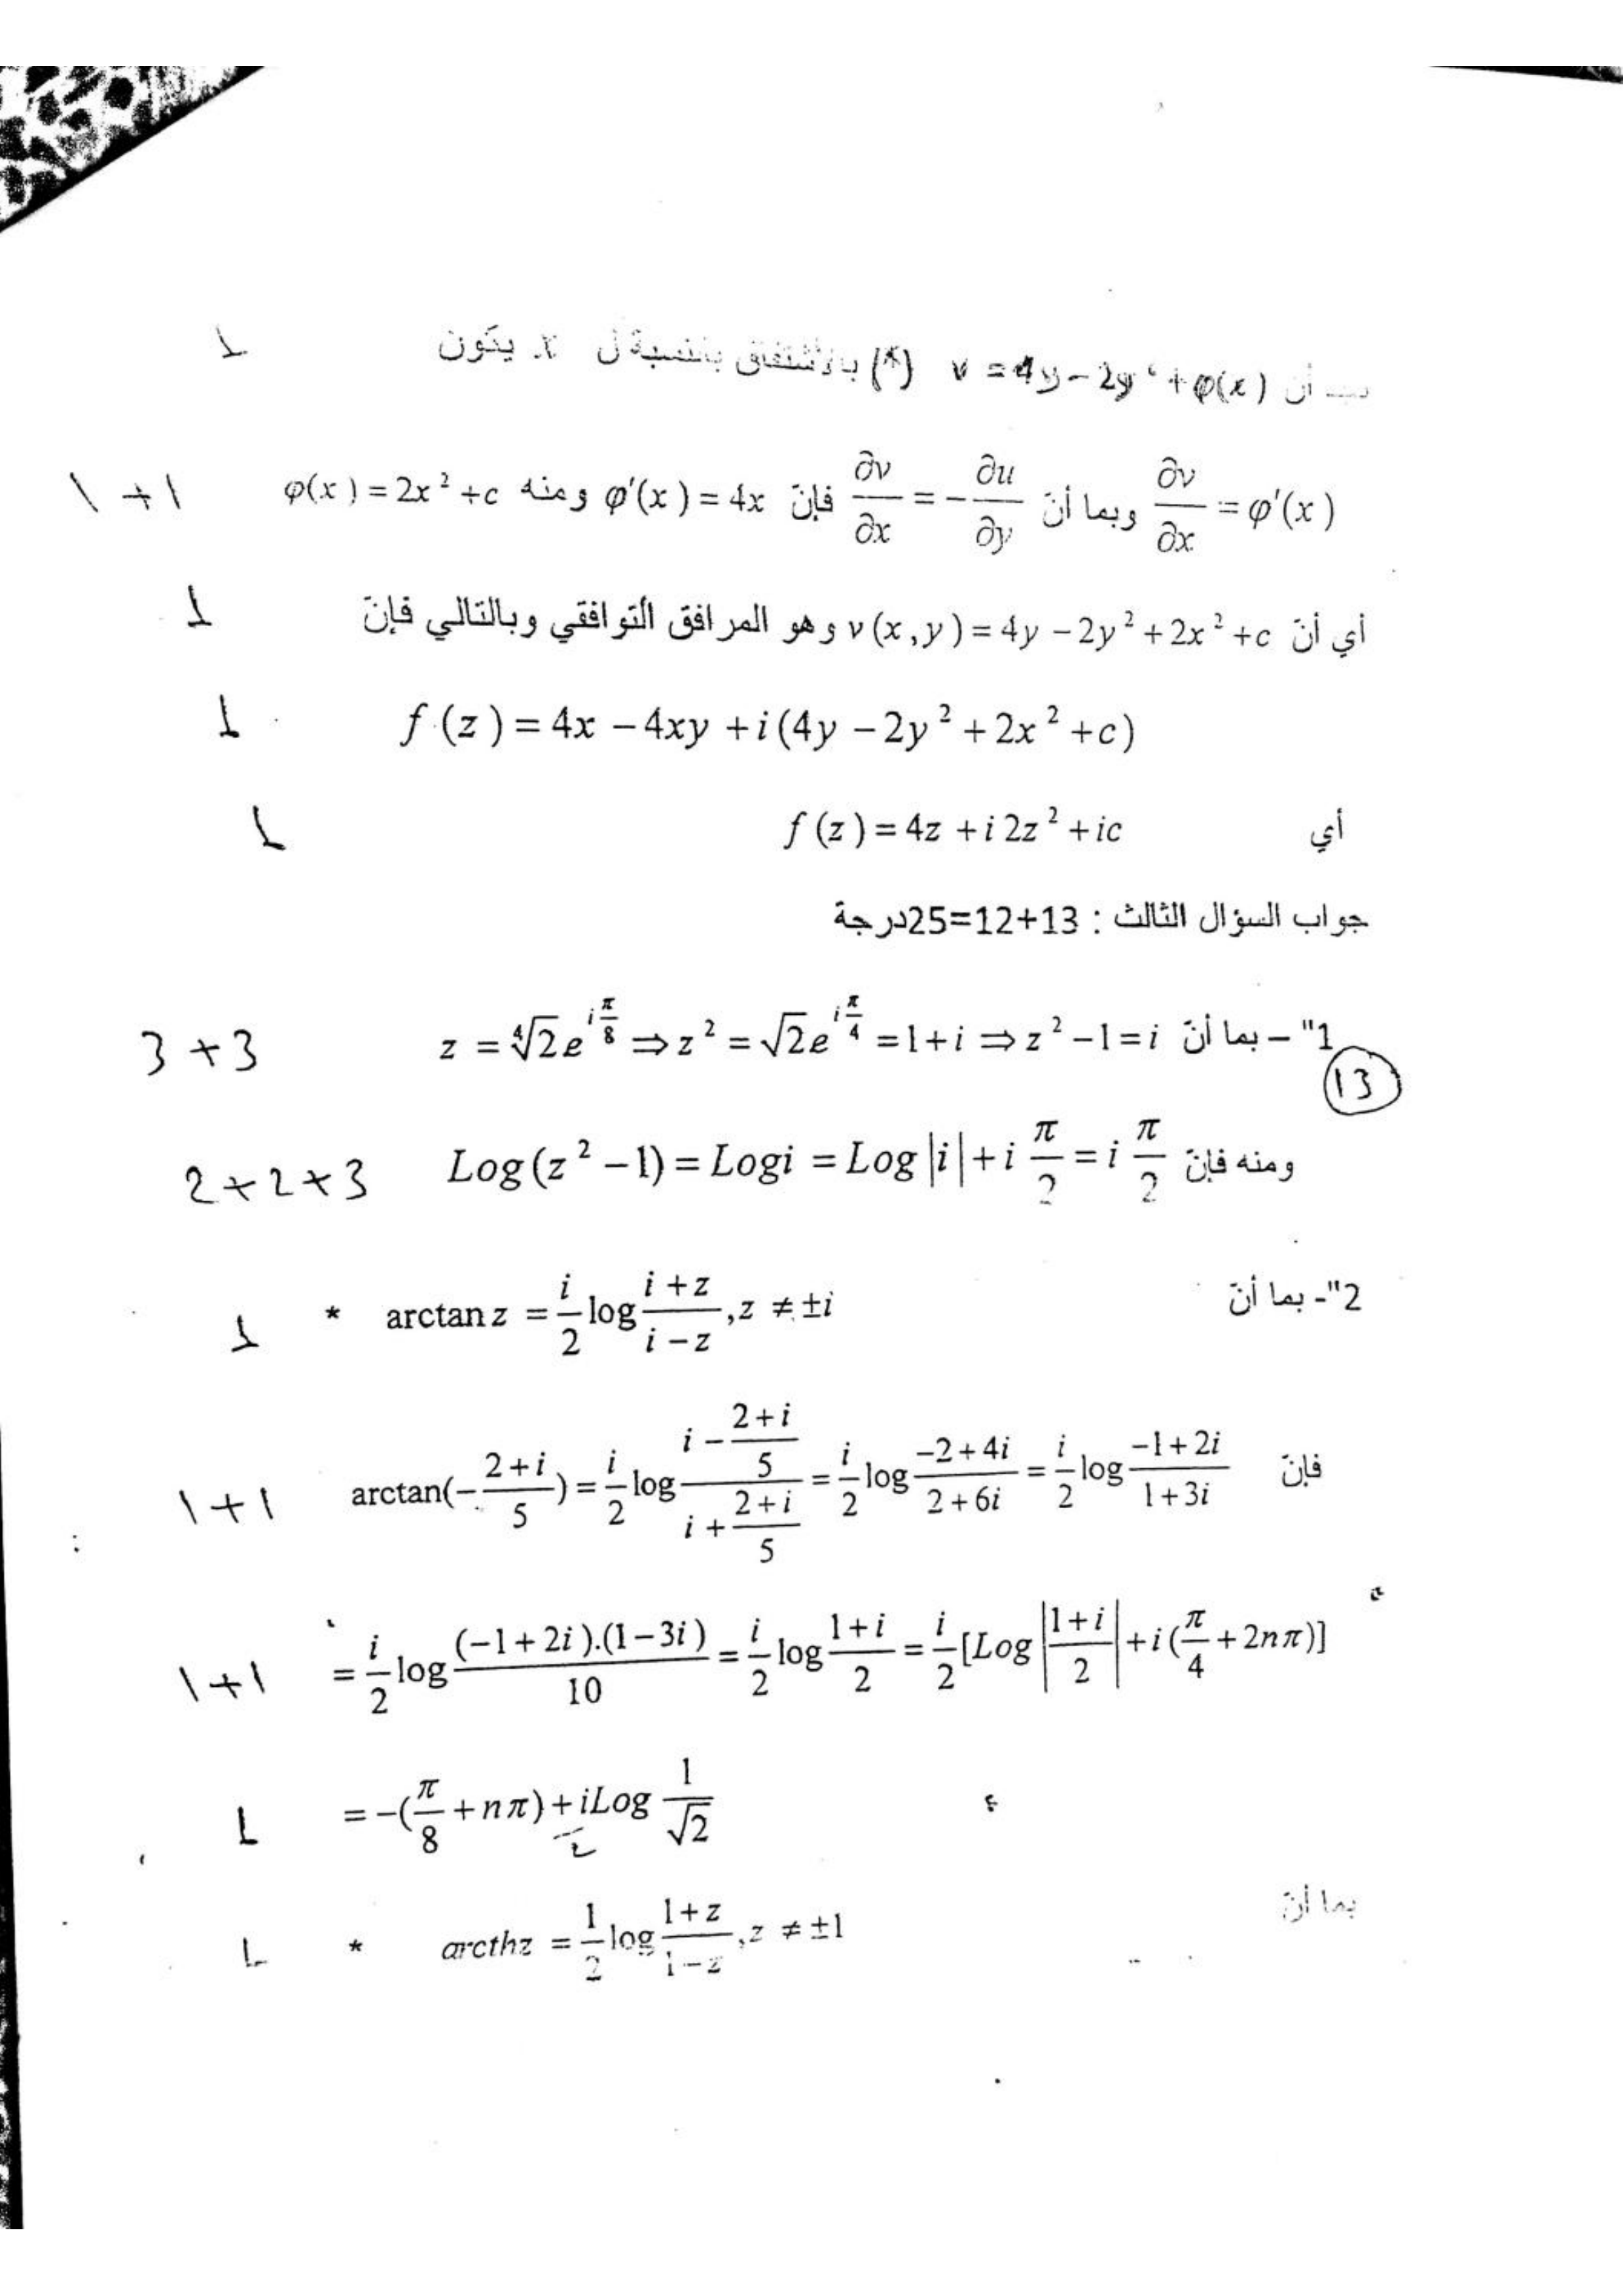 أن v = 4y − 2y² + φ(x) (*) بالاشتقاق بالنسبة ل x يكون 1
∂v/∂x = φ′(x) وبما أنّ ∂v/∂x = −∂u/∂y فإنّ φ′(x) = 4x ومنه φ(x) = 2x² + c 1+1
أي أنّ v(x,y) = 4y − 2y² + 2x² + c وهو المرافق التوافقي وبالتالي فإنّ 1
f(z) = 4x − 4xy + i(4y − 2y² + 2x² + c) 1
أي f(z) = 4z + i2z² + ic 1
جواب السؤال الثالث : 13+12=25درجة
1"– بما أنّ z = ∜2 e^{iπ/8} ⇒ z² = √2 e^{iπ/4} = 1+i ⇒ z² − 1 = i 3+3
13
ومنه فإنّ Log(z² − 1) = Logi = Log|i| + i π/2 = i π/2 2+2+3
2"- بما أنّ * arctan z = i/2 log (i+z)/(i−z), z ≠ ±i 1
فإنّ arctan(−(2+i)/5) = i/2 log (i − (2+i)/5)/(i + (2+i)/5) = i/2 log (−2+4i)/(2+6i) = i/2 log (−1+2i)/(1+3i) 1+1
= i/2 log ((−1+2i).(1−3i))/10 = i/2 log (1+i)/2 = i/2 [Log |(1+i)/2| + i(π/4 + 2nπ)] 1+1
= −(π/8 + nπ) + iLog 1/√2 1
2
بما أنّ * arcthz = 1/2 log (1+z)/(1−z), z ≠ ±1 1